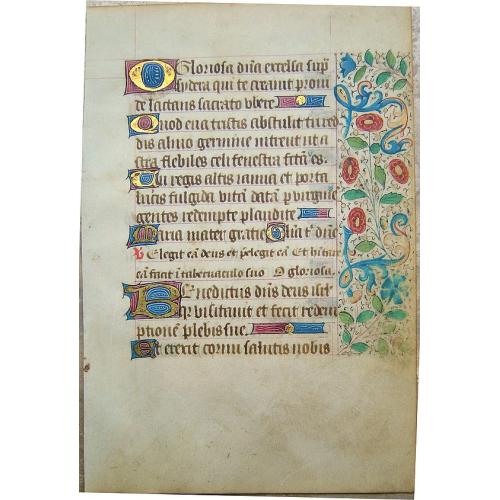 O Gloriosa dña excelsa sup̃
sydera qui te creauit proui
de lactans sacrato vbere
Quod eua tristis abstulit tu red
dis almo germine intrent ut a
stra flebiles celi fenestra fc̃ta es.
Tu regis altis ianua et porta
lucis fulgida vitã datã p uirgine
gentes redempte plaudite
Maria mater gratie Gl̃ia t' dñe
℣ Elegit eã deus et p̃elegit eã Et h̃itare
eã facit ĩ tabernaculo suo O gloriosa.
Benedictus dñs deus isrl̃
qr̃ visitauit et fecit redem
ptionẽ plebis sue.
Et erexit cornu salutis nobis